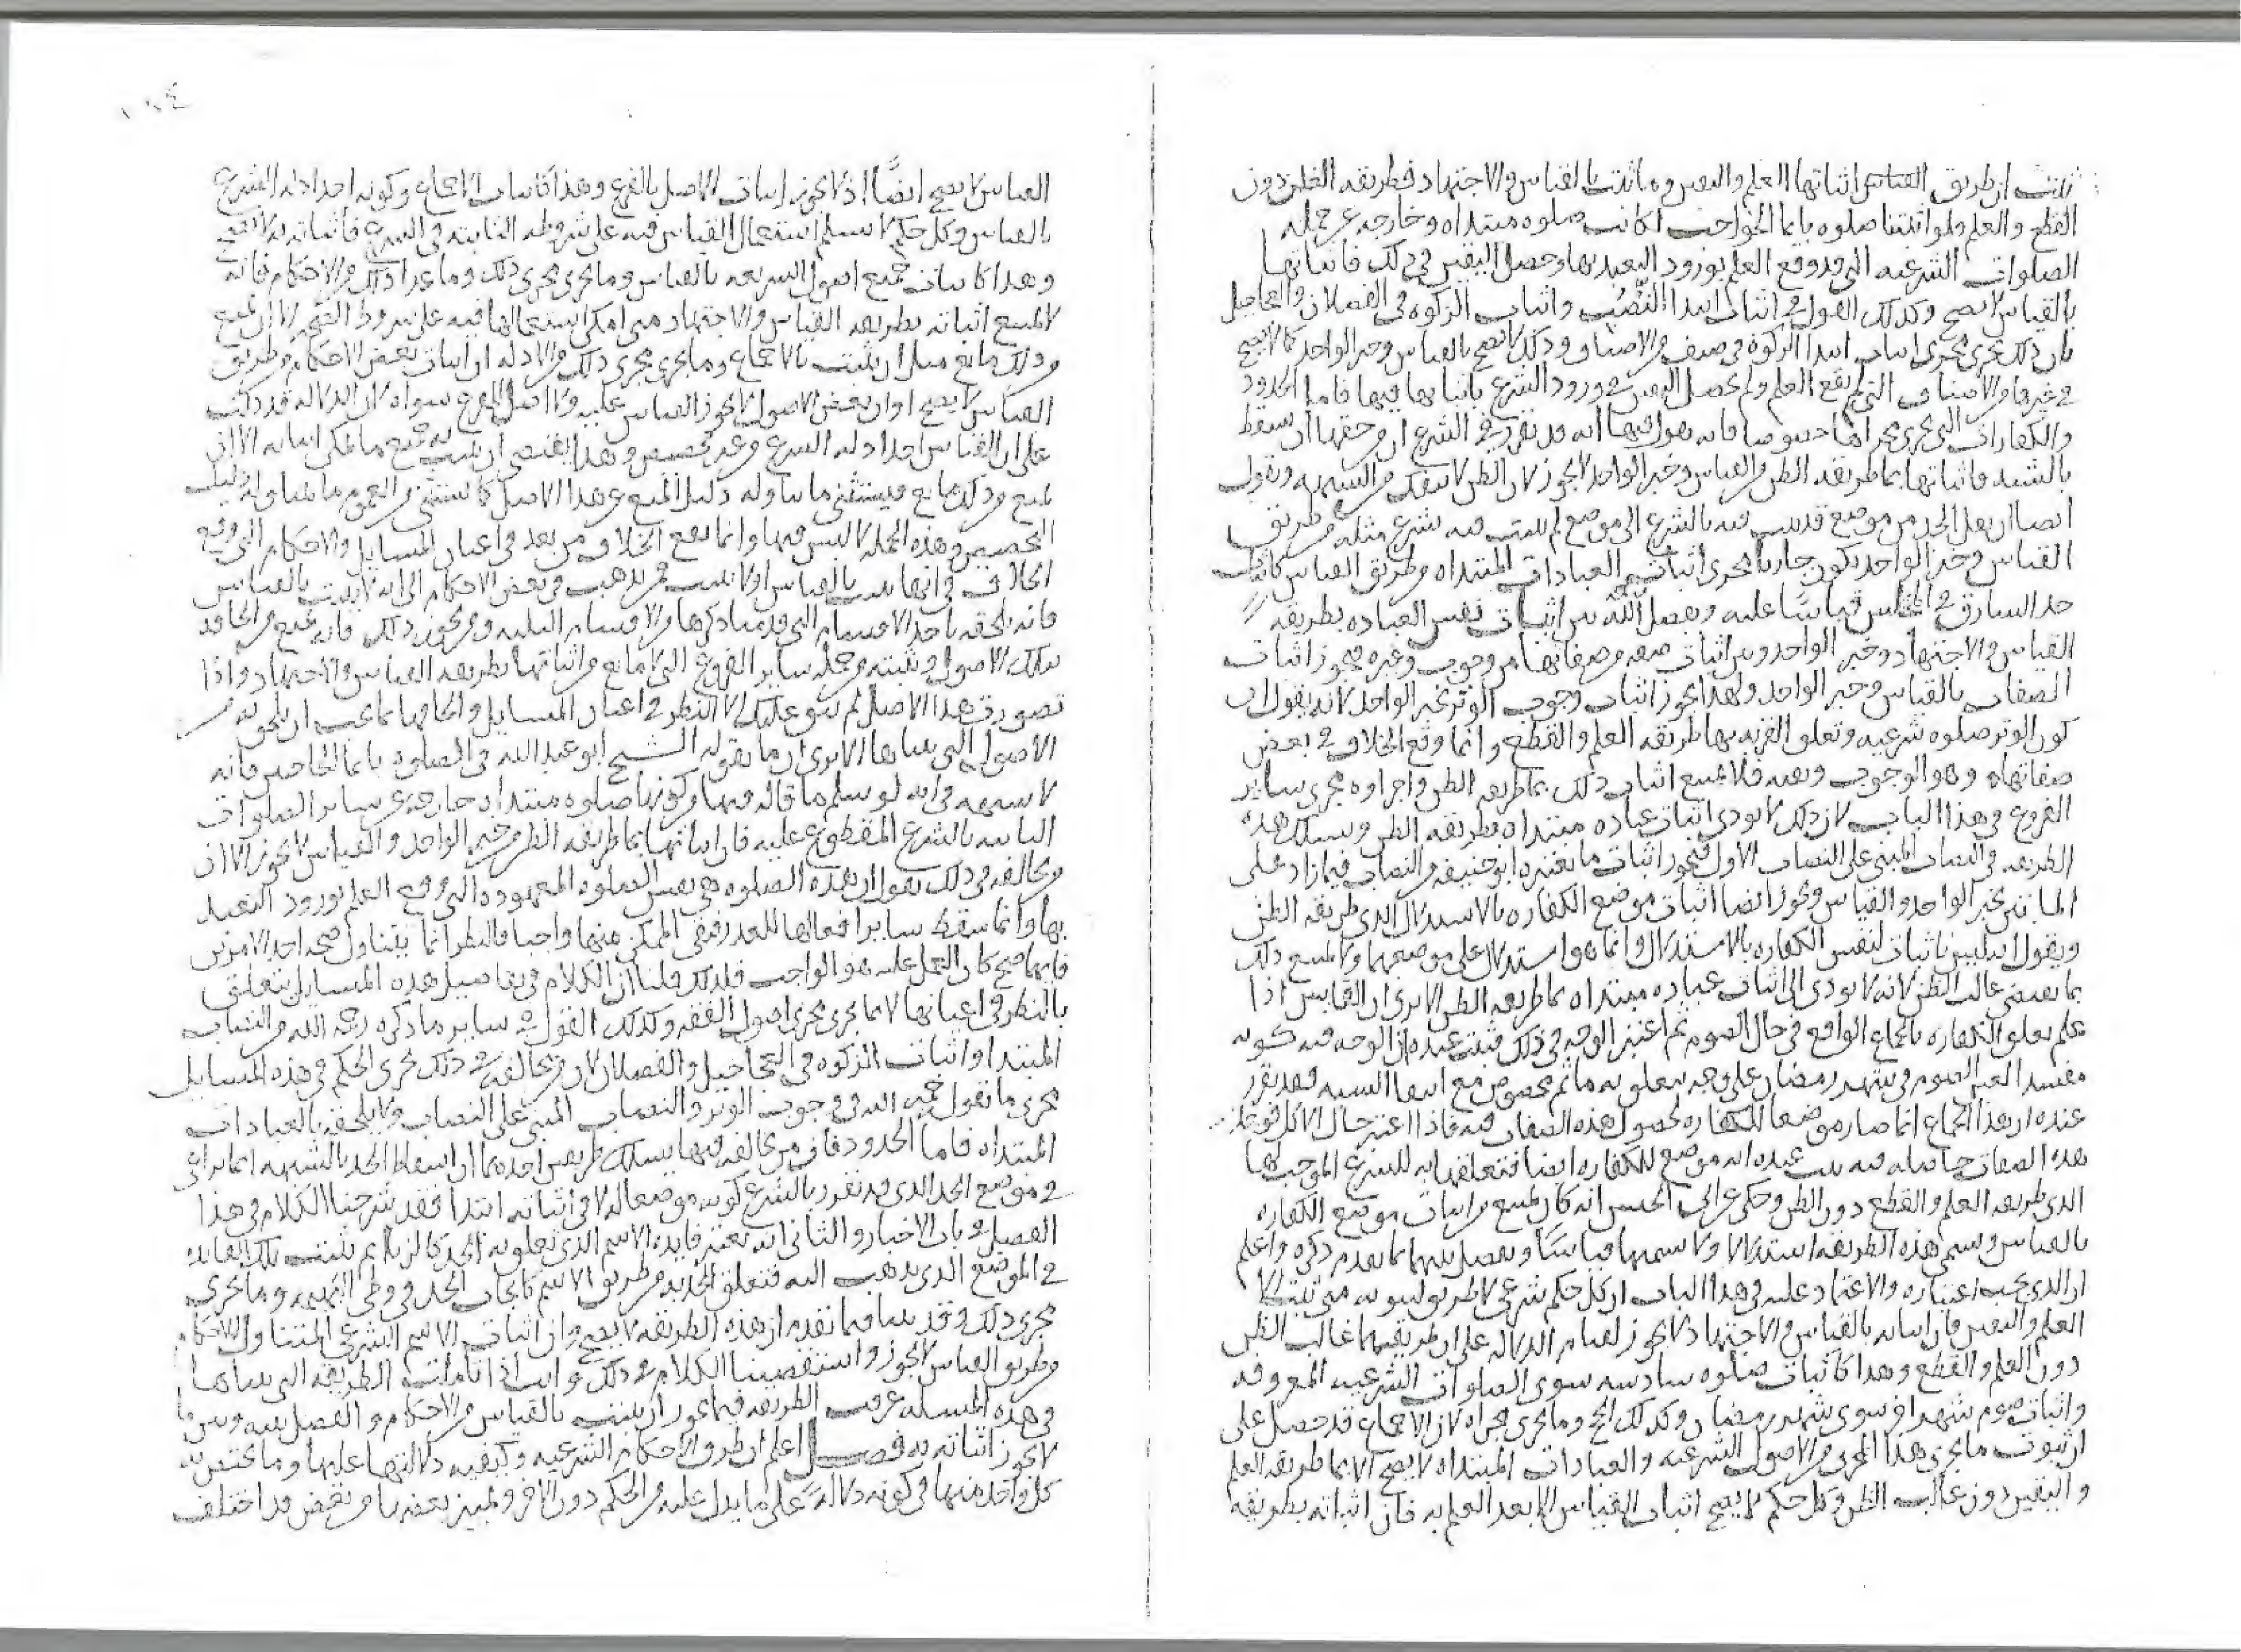 ثبتت ان طريق القياس اثباتها العلم واليقين وما ثبت بالقياس والاجتهاد فطريقه الظن دون
القطع والعلم ولو اثبتنا صلوه بايما الحواجب لكانت صلوه مبتداه وخارجه عن جمله
الصلوات الشرعيه التي قد وقع العلم بورود التعبد بها وحصل اليقين في ذلك فاثباتها
بالقياس لا يصح وكذلك القول في اثبات ابتدا النُّصُب واثبات الزكوه في الفصلان والعجاجيل
لان ذلك يجرى مجرى اثبات ابتدا الزكوة في صنف من الاصناف وذلك لا يصح بالقياس وخبر الواحد كما لا يصح
في غيرها من الاصناف التي لم يقع العلم ولم يحصل اليقين في ورود الشرع باثباتها فيها فاما الحدود
والكفارات التي تجرى مجراها خصوصا فانه يقول فيها انه قد تقرر في الشرع ان من حقها ان تسقط
بالشبه فاثباتها بما طريقه الظن من القياس وخبر الواحد لا يجوز لان الظن لا ينفك من الشبهه ويقول
ايضا ان نقل الحد من موضع قد ثبت فيه بالشرع الى موضع لم يثبت فيه شرع مثله من طريق
القياس وخبر الواحد يكون جاريا مجرى اثبات العبادات المبتداه من طريق القياس كاثبات
حد السارق في المختلس قياسًا عليه ويفصل رحمه الله بين اثبات نفس العباده بطريقه
القياس والاجتهاد وخبر الواحد وبين اثبات صفه من صفاتها من وجوب وغيره فيجوز اثبات
الصفات بالقياس وخبر الواحد ولهذا يجوز اثبات وجوب الوتر بخبر الواحد لانه يقول ان
كون الوتر صلوه شرعيه وتعلق القربه بها طريقه العلم والقطع وانما وقع الخلاف في بعض
صفاتها وهو الوجوب ونفيه فلا يمتنع اثبات ذلك بما طريقه الظن واجراوه مجرى ساير
الفروع في هذا الباب لان ذلك لا يودى اثبات عباده مبتداه بطريقه الظن ويسلك هذه
الطريقه في النصاب المبنى على النصاب الاول فيجوز اثبات ما يعتبره ابو حنيفه من النصاب فيما زاد على
المايتين بخبر الواحد والقياس ويجوز ايضا اثبات موضع الكفاره بالاستدلال الذى طريقه الظن
ويقول انه ليس باثبات لنفس الكفاره بالاستدلال وانما هو استدلال على موضعها ولا يمتنع ذلك
بما يقتضى غالب الظن لانه لا يودى الى اثبات عباده مبتداه بما طريقه الظن الا يرى ان القايس اذا
علم تعلق الكفاره بالجماع الواقع في حال الصوم ثم اعتبر الوجه في ذلك فثبت عنده ان الوجه فيه كونه
مفسدا لعين الصوم في شهر رمضان على وجه يتعلق به ماثم مخصوص مع انتفا الشبه فقد تقرر
عنده ان هذا الجماع انما صار موضعا للكفاره لحصول هذه الصفات فيه فاذا اعتبر حال الاكل فوجد
هذه الصفات حاصله فيه ثبت عنده انه موضع للكفاره ايضا فتعلقها به للشرع الموجب لها
الذى طريقه العلم والقطع دون الظن وحكى عن ابي الحسن انه كان يمتنع من اثبات موضع الكفاره
بالقياس ويسمى هذه الطريقه استدلالا ولا يسميها قياسًا ويفصل بينهما بما تقدم ذكره واعلم
ان الذى يجب اعتباره والاعتماد عليه في هذا الباب ان كل حكم شرعى لا طريق لثبوته متى ثبت الا
العلم واليقين فان اثباته بالقياس والاجتهاد لا يجوز لقيام الدلاله على ان طريقهما غالب الظن
دون العلم والقطع وهذا كاثبات صلوه سادسه سوى الصلوات الشرعيه المعروفه
واثبات صوم شهر اخر سوى شهر رمضان وكذلك الحج وما يجرى مجراه لان الاجماع قد حصل على
ان ثبوت ما يجرى هذا المجرى من الاصول الشرعيه والعبادات المبتداه لا يصح الا بما طريقه العلم
واليقين دون غالب الظن وكل حكم لا يصح اثبات القياس الا بعد العلم به فان اثباته بطريقه
القياس لا يصح ايضًا اذ لا يجوز اثبات الاصل بالفرع وهذا كاثبات الاجماع وكونه احد ادله الشرع
بالقياس وكل حكم لا يسلم استعمال القياس فيه على شروطه الثابته في الشرع فاثباته به لا يصح
وهذا كاثبات جميع اصول الشريعه بالقياس وما يجرى مجرى ذلك وما عدا ذلك من الاحكام فانه
لا يمتنع اثباته بطريقه القياس والاجتهاد متى امكن استعمالهما فيه على شروط الصحه الا ان يمنع
من ذلك مانع مثل ان يثبت بالاجماع وما يجرى مجرى ذلك من الادله ان اثبات بعض الاحكام من طريق
القياس لا يصح او ان بعض الاصول لا يجوز القياس عليه ولا اصل للفرع سواه لان الدلاله قد دلت
على ان القياس احد ادله الشرع من غير تخصيص وهذا يقتضى ان يثبت به جميع ما يمكن اثباته الا ان
يمنع من ذلك مانع فيستثنى ما يتناوله دليل المنع من هذا الاصل كما يستثنى من العموم ما يتناوله دليل
التخصيص وهذه الجمله لا لبس فيها وانما يقع الخلاف من بعد في اعيان المسايل والاحكام التي وقع
الخلاف في انها تثبت بالقياس او لا تثبت فمن يذهب في بعض الاحكام الى انه لا يثبت بالقياس
فانه يلحقه باحد الاقسام التي قدمنا ذكرها من الاقسام الثلثه ومن يجوز ذلك فانه يمنع من الحاقه
بتلك الاصول ويثبته من جمله ساير الفروع التي لا مانع من اثباتها بطريقه القياس والاجتهاد واذا
تصورت هذا الاصل لم يبق عليك الا النظر في اعيان المسايل والحاقها بما يجب ان يلحق به من
الاصول التي بيناها الا يرى ان ما يقوله الشيخ ابو عبد الله في الصلوه بايما الحاجبين فانه
لا شبهه في انه لو سلم ما قاله فيها من كونها صلوه مبتداه خارجه عن ساير الصلوات
الثابته بالشرع المقطوع عليه فان اثباتها بما طريقه الظن من خبر الواحد والقياس لا يجوز الا ان
من يخالفه في ذلك يقول ان هذه الصلوه هي نفس الصلوه المعهوده التي وقع العلم بورود التعبد
بها وانما سقط ساير افعالها للعذر فبقى الممكن منها واجبا فالنظر انما يتناول صحه احد الامرين
فايهما صح كان العمل عليه هو الواجب فلذلك قلنا ان الكلام في تفاصيل هذه المسايل يتعلق
بالنظر في اعيانها لا بما يجرى مجرى اصول الفقه وكذلك القول في ساير ما ذكره رحمه الله من النصاب
المبتدا واثبات الزكوه في العجاجيل والفصلان لان من يخالفه في ذلك يجرى الحكم في هذه المسايل
مجرى ما يقوله رحمه الله في وجوب الوتر والنصاب المبنى على النصاب ولا يلحقه بالعبادات
المبتداه فاما الحدود فان من يخالفه فيها يسلك طريقين احدهما ان اسقاط الحد بالشبهه انما يراعى
في موضع الحد الذى قد تقرر بالشرع كونه موضعا له لا في اثباته ابتدا فقد شرحنا الكلام في هذا
الفصل في باب الاخبار والثاني انه يعتبر فايده الاسم الذى تعلق به الحد كالزنا ثم يثبت تلك الفايده
في الموضع الذى يذهب اليه فتعلق الحد به من طريق الاسم كايجاب الحد في وطى البهيمه وما يجرى
مجرى ذلك وقد بينا فيما تقدم ان هذه الطريقه لا تصح وان اثبات الاسم الشرعى المتناول للاحكام
من طريق القياس لا يجوز واستقصينا الكلام في ذلك وانت اذا تاملت الطريقه التي بيناها
في هذه المسله عرفت الطريقه فيما يجوز ان يثبت بالقياس من الاحكام والفصل بينه وبين ما
لا يجوز اثباته به فصل اعلم ان طرق الاحكام الشرعيه وكيفيه دلالتها عليها وما يختص به
كل واحد منها في كونه دلالهً على ما يدل عليه من الحكم دون الاخر وتميز بعضها من بعض قد اختلف